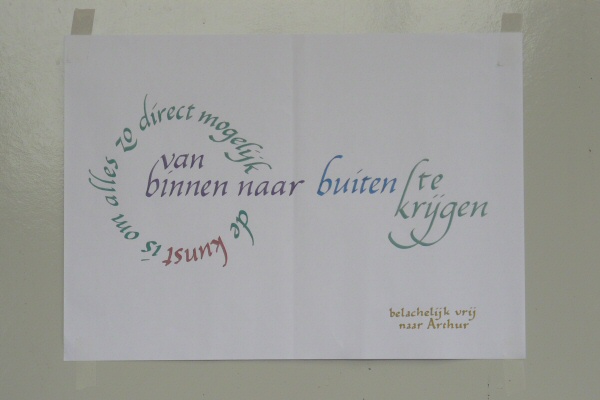 de kunst is om alles zo direct mogelijk
van
binnen naar buiten te
krijgen
belachelijk vrij
naar Arthur